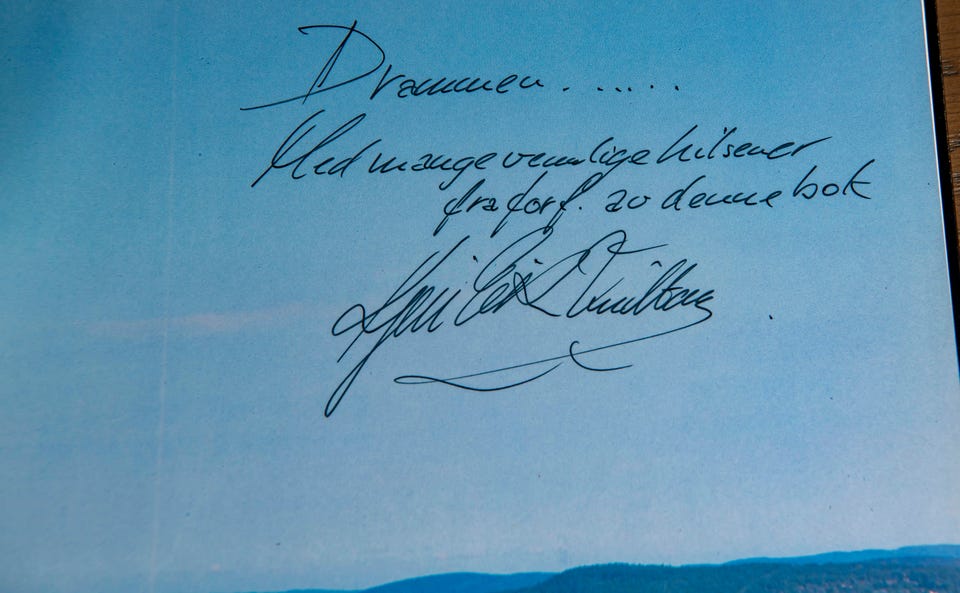 Drammen . . . . . .
Med mange vennlige hilsener
fra forf. av denne bok